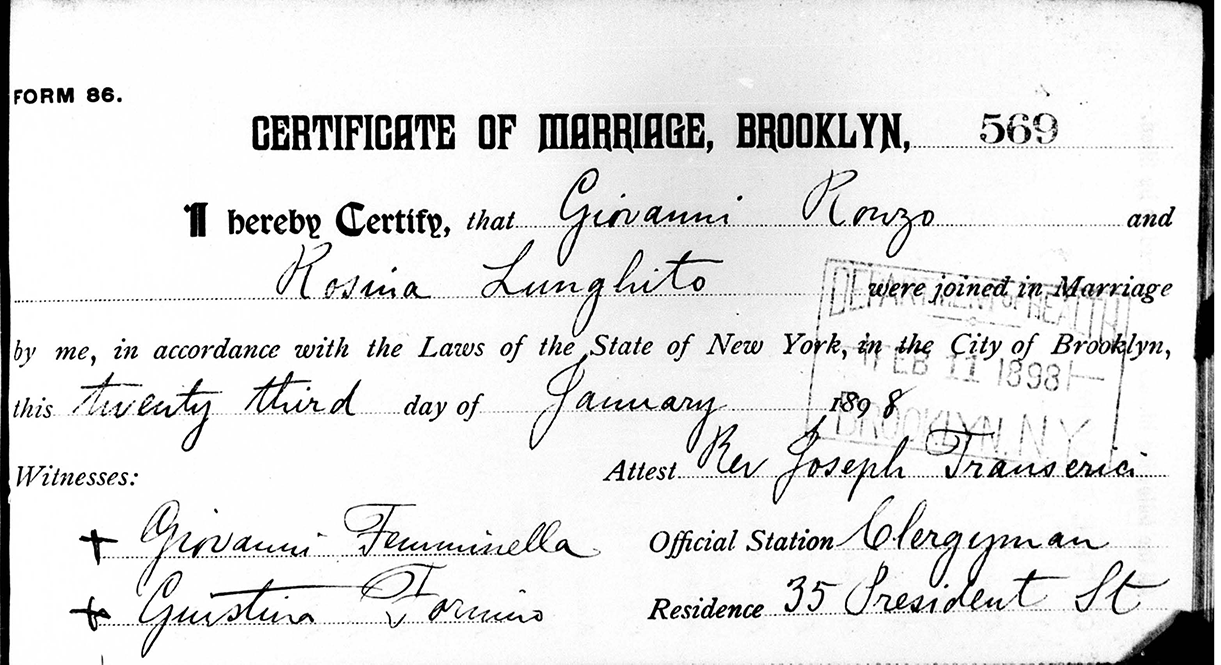 FORM 86.
CERTIFICATE OF MARRIAGE, BROOKLYN, 569
I hereby Certify, that Giovanni Ronzo and
Rosina Lunghito were joined in Marriage
by me, in accordance with the Laws of the State of New York, in the City of Brooklyn,
this twenty third day of January 1898
DEPARTMENT OF HEALTH
FEB 11 1898
BROOKLYN, N.Y.
Witnesses: Attest Rev Joseph
+ Giovanni Femminella Official Station Clergyman
+ Giustina Fornino Residence 35 President St